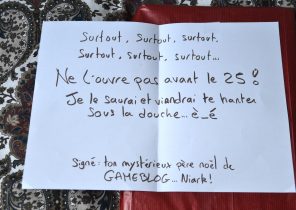 Surtout, Surtout, surtout.
Surtout, surtout, surtout...
Ne l'ouvre pas avant le 25!
Je le saurai et viendrai te hanter
sous la douche... è_é
Signé: ton mystérieux père noël de
GAMEBLOG... Niark!